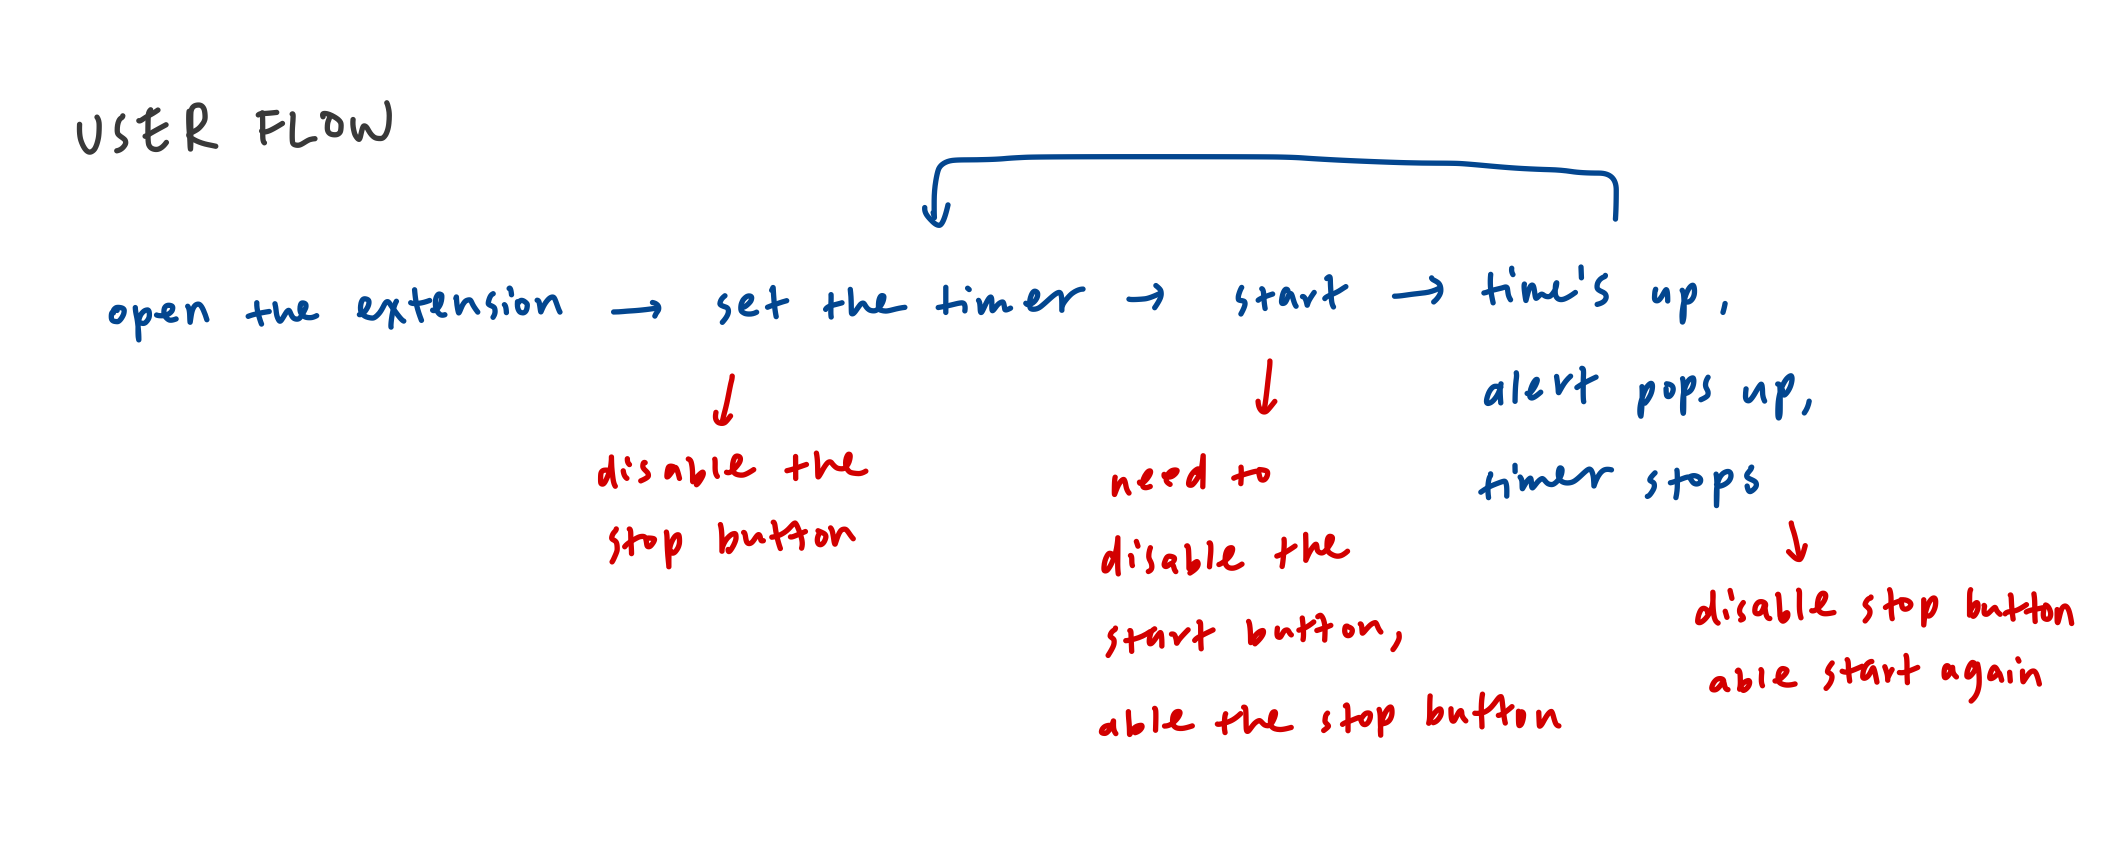 USER FLOW
open the extension → set the timer → start → time's up,
alert pops up,
timer stops
disable the
stop button
need to
disable the
start button,
able the stop button
disable stop button
able start again